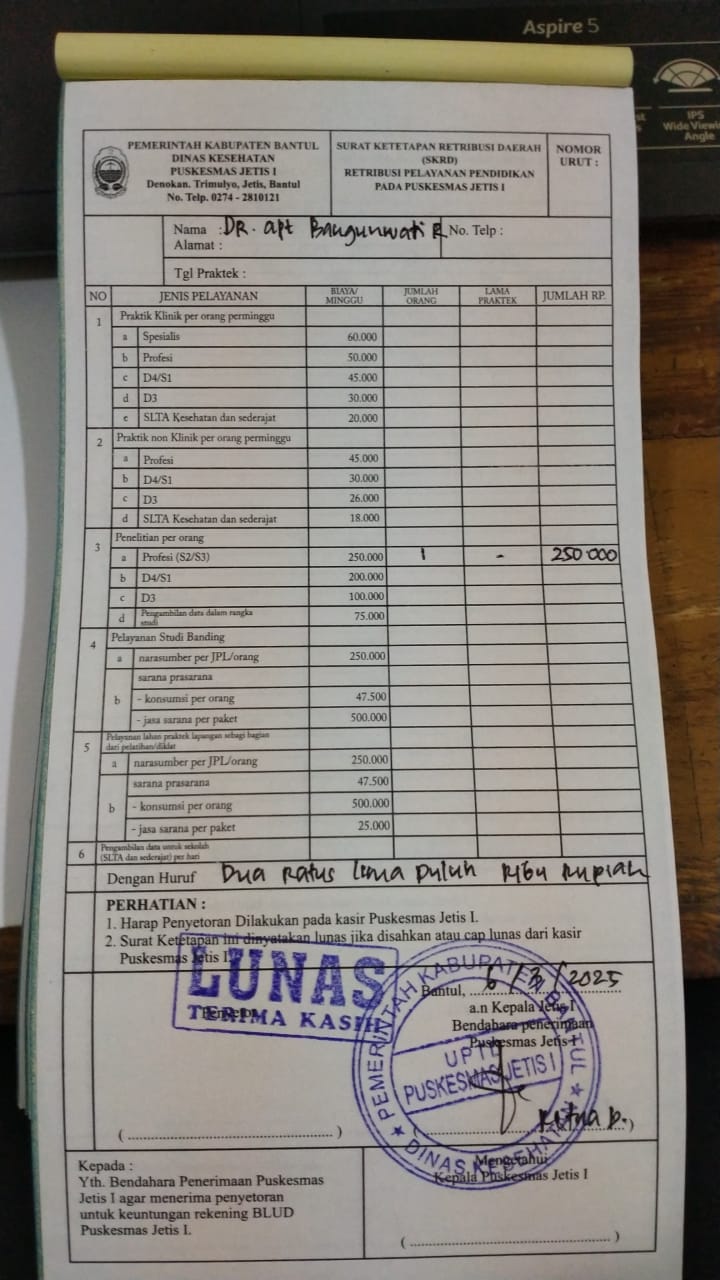 Aspire 5
IPS
Wide Viewing
Angle
PEMERINTAH KABUPATEN BANTUL
DINAS KESEHATAN
PUSKESMAS JETIS I
Denokan. Trimulyo, Jetis, Bantul
No. Telp. 0274 - 2810121
SURAT KETETAPAN RETRIBUSI DAERAH
(SKRD)
RETRIBUSI PELAYANAN PENDIDIKAN
PADA PUSKESMAS JETIS I
NOMOR
URUT :
Nama : DR. apt Bangunwati R No. Telp :
Alamat :
Tgl Praktek :
NO JENIS PELAYANAN BIAYA/MINGGU JUMLAH ORANG LAMA PRAKTEK JUMLAH RP.
1 Praktik Klinik per orang perminggu
a Spesialis 60.000
b Profesi 50.000
c D4/S1 45.000
d D3 30.000
e SLTA Kesehatan dan sederajat 20.000
2 Praktik non Klinik per orang perminggu
a Profesi 45.000
b D4/S1 30.000
c D3 26.000
d SLTA Kesehatan dan sederajat 18.000
3 Penelitian per orang
a Profesi (S2/S3) 250.000 1 - 250.000
b D4/S1 200.000
c D3 100.000
d Pengambilan data dalam rangka studi 75.000
4 Pelayanan Studi Banding
a narasumber per JPL/orang 250.000
sarana prasarana
b - konsumsi per orang 47.500
- jasa sarana per paket 500.000
5 Pelayanan lahan praktek lapangan sebagi bagian dari pelatihan/diklat
a narasumber per JPL/orang 250.000
sarana prasarana 47.500
b - konsumsi per orang 500.000
- jasa sarana per paket 25.000
6 Pengambilan data untuk sekolah (SLTA dan sederajat) per hari
Dengan Huruf Dua Ratus lima puluh Ribu Rupiah
PERHATIAN :
1. Harap Penyetoran Dilakukan pada kasir Puskesmas Jetis I.
2. Surat Ketetapan ini dinyatakan lunas jika disahkan atau cap lunas dari kasir
Puskesmas Jetis I.
LUNAS
TERIMA KASIH
Penyetor
Bantul, 6/3/2025
a.n Kepala Jetis I
Bendahara penerimaan
Puskesmas Jetis I
PEMERINTAH KABUPATEN BANTUL
UPTD
PUSKESMAS JETIS I
DINAS KESEHATAN
(........................................)
Mengetahui
Kepala Puskesmas Jetis I
(........................................)
Kepada :
Yth. Bendahara Penerimaan Puskesmas
Jetis I agar menerima penyetoran
untuk keuntungan rekening BLUD
Puskesmas Jetis I.